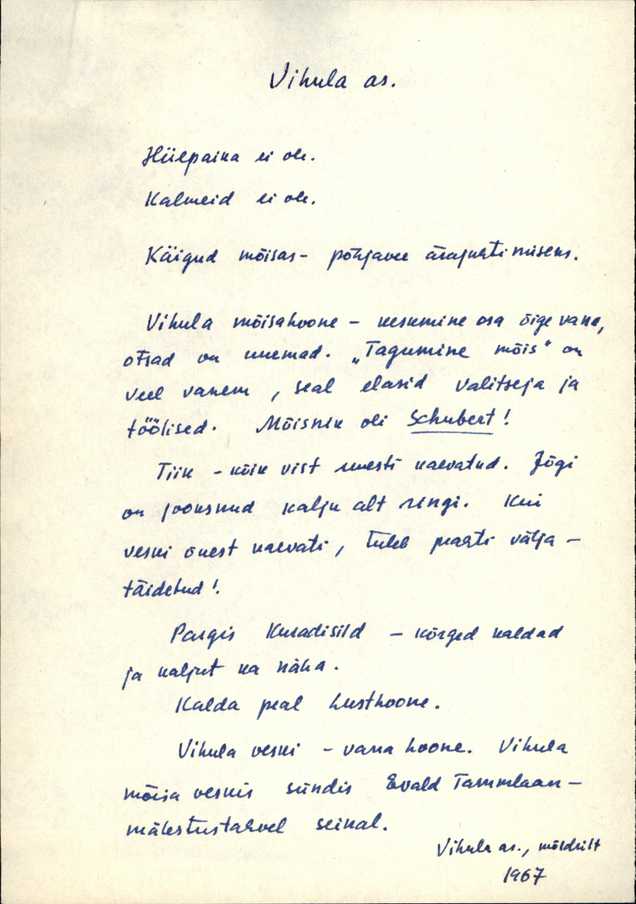 Vihula as.
Hiiepaika ei ole.
Kalmeid ei ole.
Käigud mõisas - põhjavee ärajuhtimiseks.
Vihula mõisahoone - keskmine osa õige vana,
otsad on uuemad. „Tagumine mõis" on
veel vanem, seal elasid valitseja ja
töölised. Mõisnik oli Schubert!
Tiik - kõik vist uuesti kaevatud. Jõgi
on jooksnud kalju alt ringi. Kui
veski õuest kaevati, tuleb paati välja -
täidetud!
Pargis Kuradisild - kõrged kaldad
ja kaljut ka näha.
Kalda peal lusthoone.
Vihula veski - vana hoone. Vihula
mõisa veskis sündis Evald Tammlaan -
mälestustahvel seinal.
Vihula as., möldrilt
1967